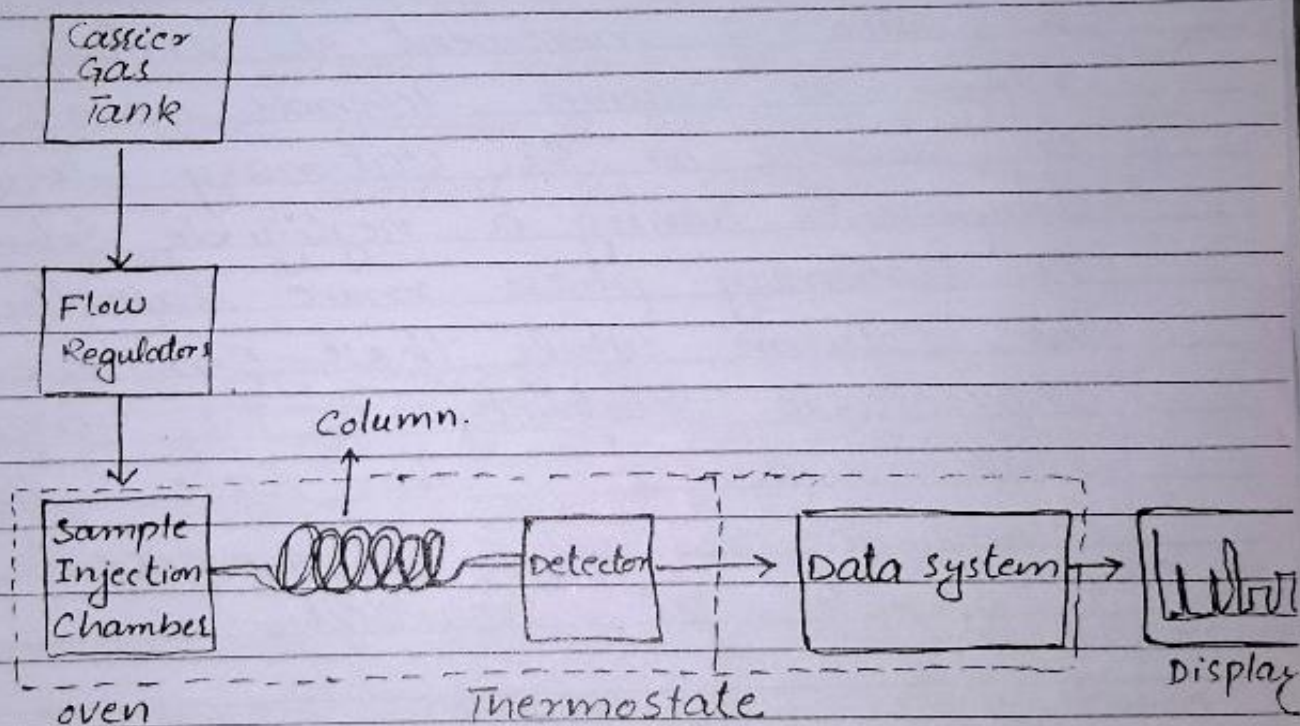 Carrier
Gas
Tank
Flow
Regulators
Column.
Sample
Injection
Chamber
Detector
Data system
Display
oven
Thermostate